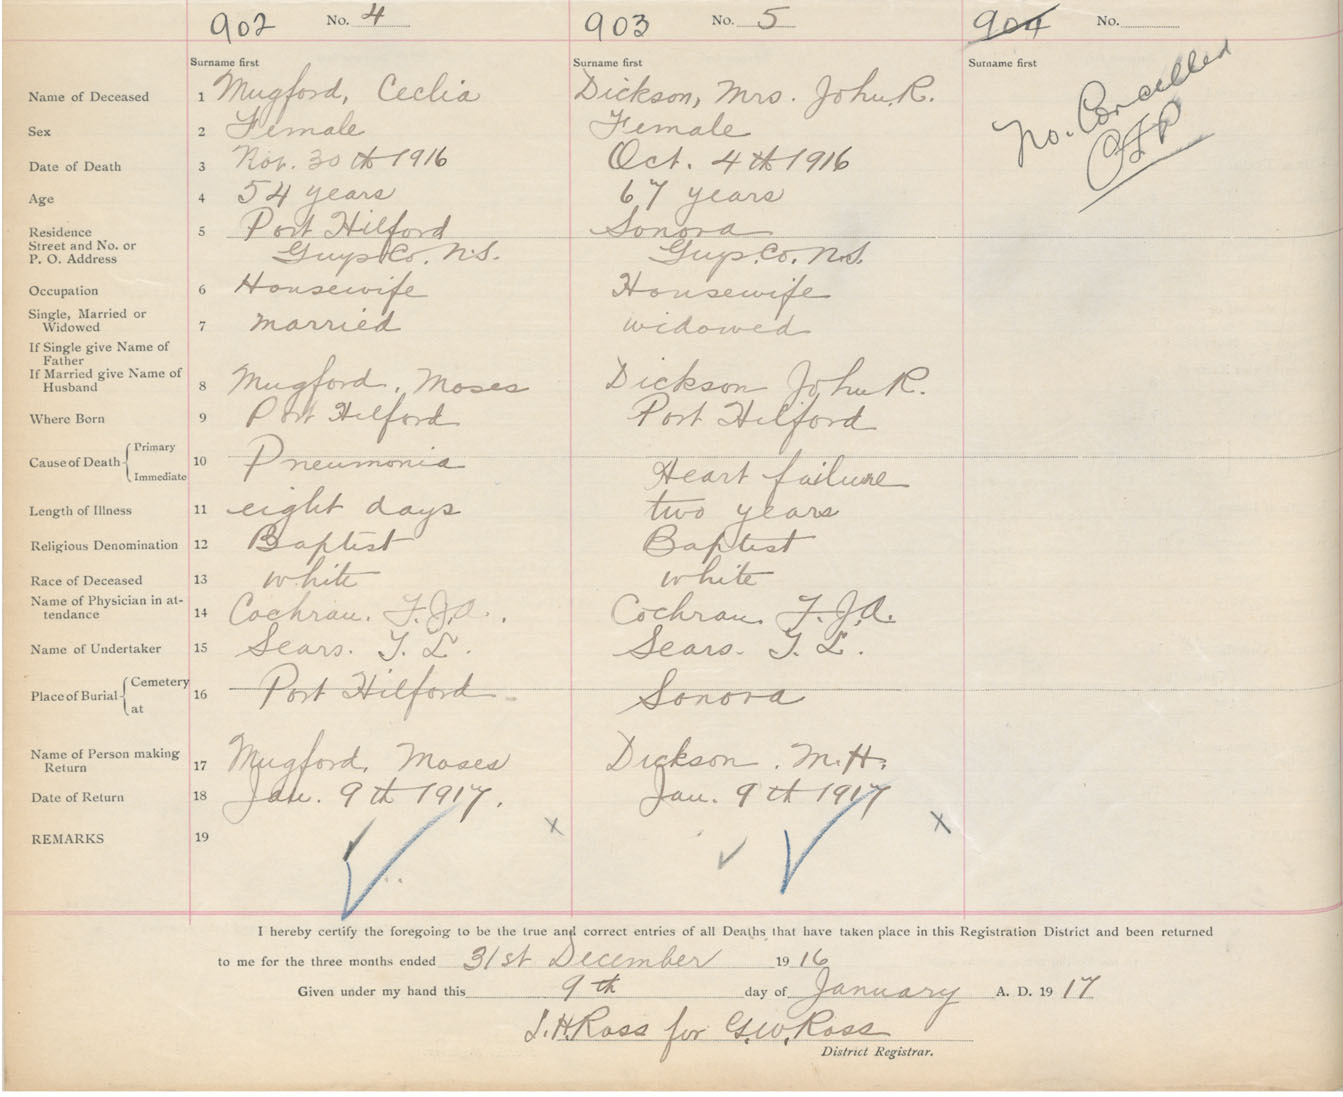 902 No. 4 903 No. 5 904 No.
Surname first Surname first Surname first
Name of Deceased 1 Mugford, Ceclia Dickson, Mrs. John R. No. Cancelled
Sex 2 Female Female
Date of Death 3 Nov. 30th 1916 Oct. 4th 1916
Age 4 54 years 67 years
Residence 5 Port Hilford Sonora
Street and No. or
P. O. Address Guys. Co. N.S. Guys. Co. N.S.
Occupation 6 Housewife Housewife
Single, Married or
Widowed 7 married widowed
If Single give Name of
Father
If Married give Name of
Husband 8 Mugford, Moses Dickson John R.
Where Born 9 Port Hilford Port Hilford
Cause of Death Primary 10 Pneumonia
Immediate Heart failure
Length of Illness 11 eight days two years
Religious Denomination 12 Baptist Baptist
Race of Deceased 13 white white
Name of Physician in at-
tendance 14 Cochran. F.J.A. Cochran. F.J.A.
Name of Undertaker 15 Sears. Sears.
Place of Burial Cemetery 16 Port Hilford Sonora
at
Name of Person making
Return 17 Mugford, Moses Dickson. M.H.
Date of Return 18 Jan. 9th 1917. Jan. 9th 1917
REMARKS 19 x x
I hereby certify the foregoing to be the true and correct entries of all Deaths that have taken place in this Registration District and been returned
to me for the three months ended 31st December 1916
Given under my hand this 9th day of January A. D. 1917
H. Ross for G.W. Ross
District Registrar.